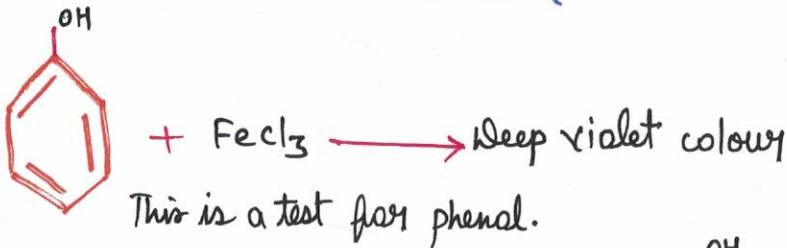 OH
+ FeCl3 → Deep violet colour
This is a test for phenol.
OH